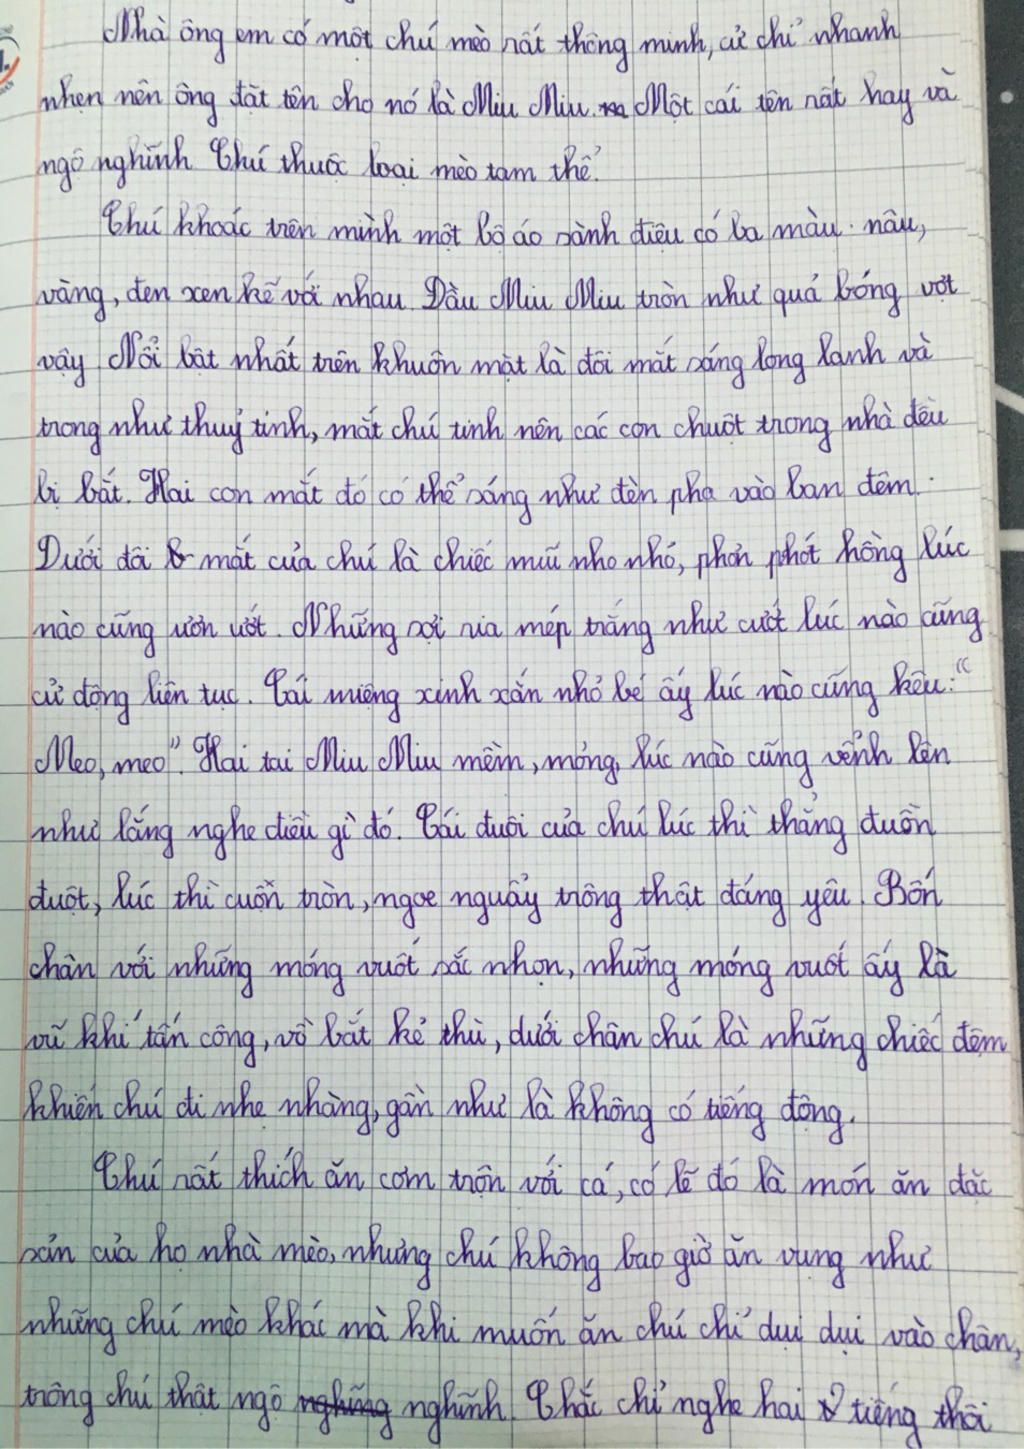 Nhà ông em có một chú mèo rất thông minh, cử chỉ nhanh
nhẹn nên ông đặt tên cho nó là Miu Miu. Một cái tên rất hay và
ngộ nghĩnh Chú thuộc loại mèo tam thể.
Chú khoác trên mình một bộ áo sành điệu có ba màu: nâu,
vàng, đen xen kẽ với nhau. Đầu Miu Miu tròn như quả bóng vợt
vậy. Nổi bật nhất trên khuôn mặt là đôi mắt sáng long lanh và
trong như thuỷ tinh, mắt chú tinh nên các con chuột trong nhà đều
bị bắt. Hai con mắt đó có thể sáng như đèn pha vào ban đêm.
Dưới đôi mắt của chú là chiếc mũi nho nhỏ, phơn phớt hồng lúc
nào cũng ươn ướt. Những sợi ria mép trắng như cướt lúc nào cũng
cử động liên tục. Cái miệng xinh xắn nhỏ bé ấy lúc nào cũng kêu: "
Meo, meo". Hai tai Miu Miu mềm, mỏng, lúc nào cũng vểnh lên
như lắng nghe điều gì đó. Cái đuôi của chú lúc thì thẳng đuồn
đuột, lúc thì cuộn tròn, ngoe nguẩy trông thật đáng yêu. Bốn
chân với những móng vuốt sắc nhọn, những móng vuốt ấy là
vũ khí tấn công, vồ bắt kẻ thù, dưới chân chú là những chiếc đệm
khiến chú đi nhẹ nhàng, gần như là không có tiếng động.
Chú rất thích ăn cơm trộn với cá, có lẽ đó là món ăn đặc
sản của họ nhà mèo, nhưng chú không bao giờ ăn vụng như
những chú mèo khác mà khi muốn ăn chú chỉ dụi dụi vào chân,
trông chú thật ngộ nghĩnh. Chắc chỉ nghe hai tiếng thôi